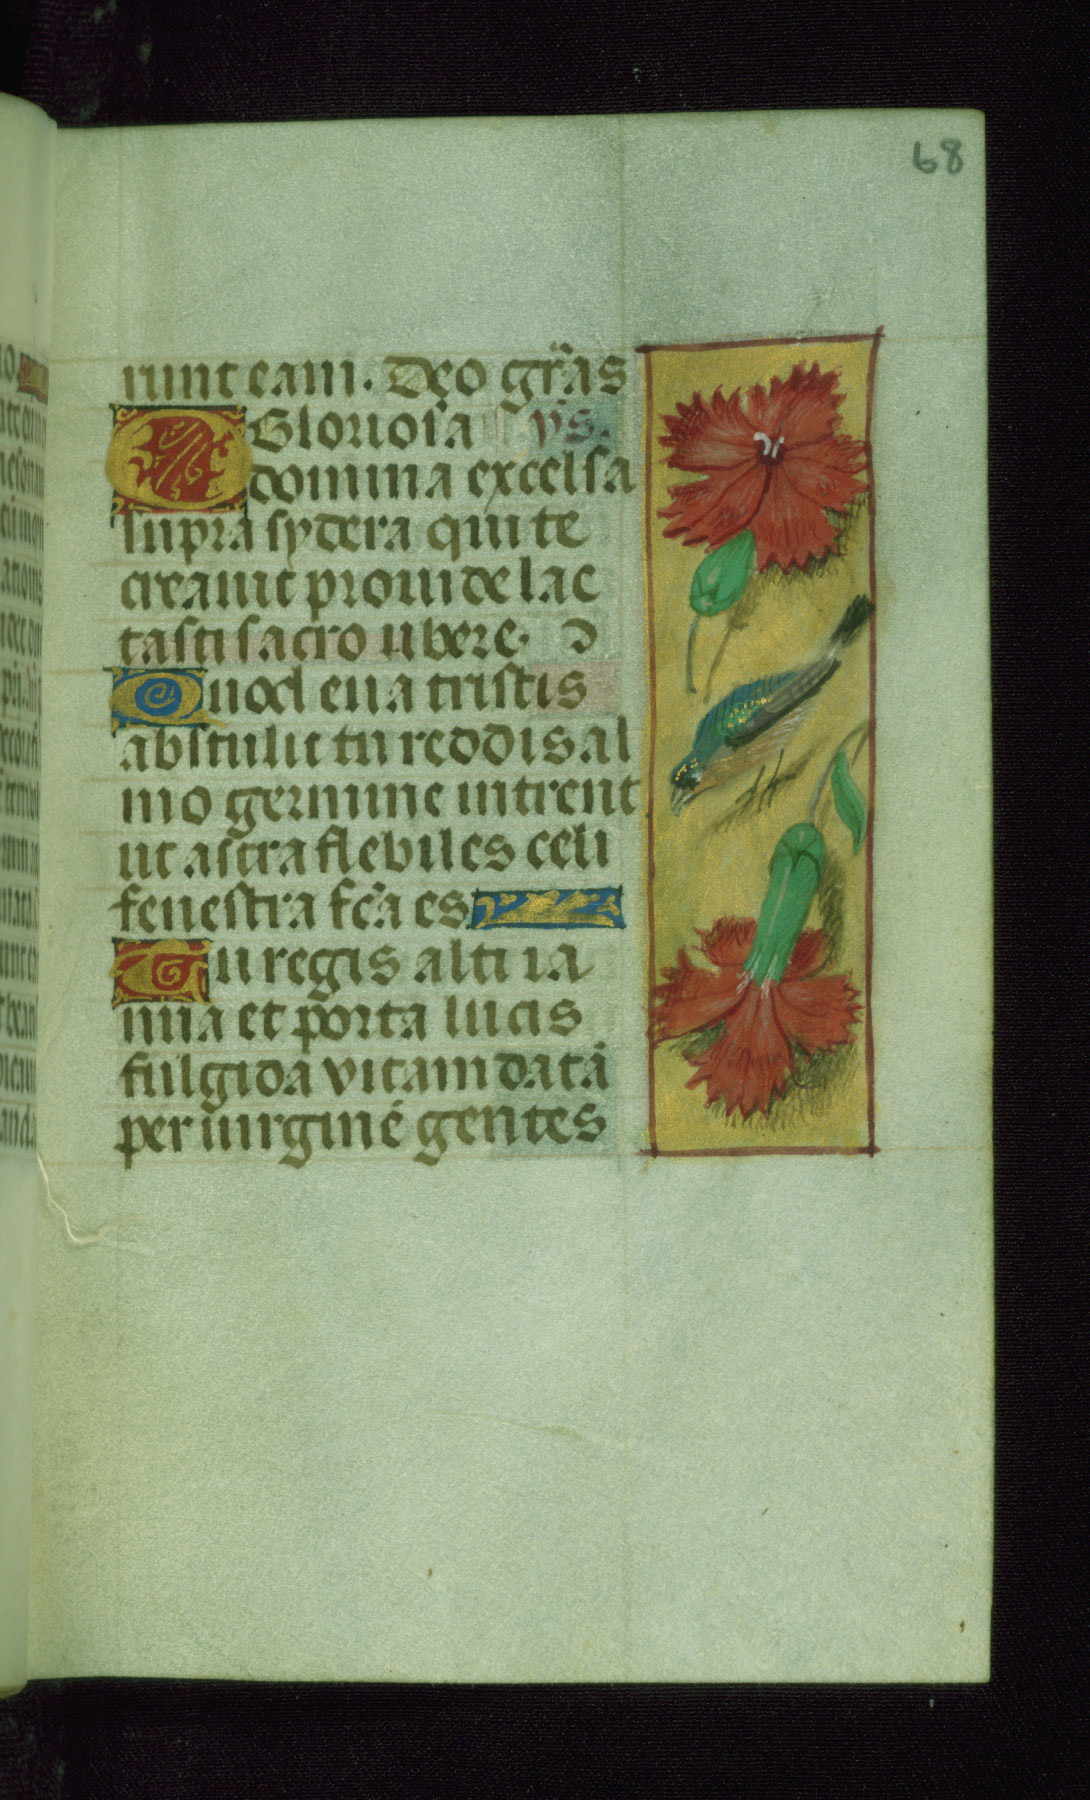 68
runt eam. Deo gr̃as
O Gloriosa ys.
domina excelsa
supra sydera qui te
creauit prouide lac
tasti sacro ubere. D
Quod eua tristis
abstulit tu reddis al
mo germine intrent
ut astra flebiles celi
fenestra fc̃a es
Tu regis alti ia
nua et porta lucis
fulgida vitam datã
per uirginẽ gentes